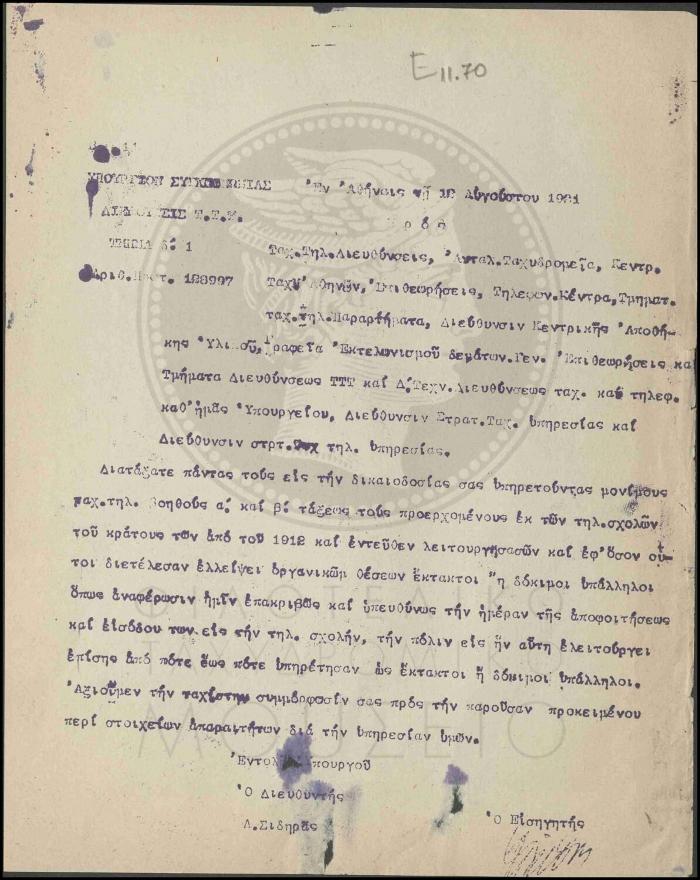 Ε 11.70
ΥΠΟΥΡΓΕΙΟΝ ΣΥΓΚΟΙΝΩΝΙΑΣ Ἐν Ἀθήναις τῇ 12 Αὐγούστου 1921
ΔΙΕΥΘΥΝΣΙΣ Τ.Τ.Τ. Πρὸς
ΤΜΗΜΑ δ: 1 Ταχ.Τηλ.Διευθύνσεις, Ἀνταλ.Ταχυδρομεῖα, Κεντρ.
Ἀριθ.Πρωτ. 128997 Ταχ Ἀθηνῶν, Ἐπιθεωρήσεις, Τηλεφων.Κέντρα, Τμηματ.
ταχ.τηλ.Παραρτήματα, Διεύθυνσιν Κεντρικῆς Ἀποθή-
κης Ὑλικοῦ, Γραφεῖα Ἐκτελωνισμοῦ δεμάτων.Γεν. Ἐπιθεωρήσεις καὶ
Τμήματα Διευθύνσεως ΤΤΤ καὶ Δ.Τεχν.Διευθύνσεως ταχ. καὶ τηλεφ.
καθ'ἡμᾶς Ὑπουργείου, Διεύθυνσιν Στρατ.Ταχ. ὑπηρεσίας καὶ
Διεύθυνσιν στρτ. τηλ. ὑπηρεσίας.
Διατάξατε πάντας τοὺς εἰς τὴν δικαιοδοσίας σας ὑπηρετοῦντας μονίμους
ταχ.τηλ. βοηθοὺς α: καὶ β: τάξεως τοὺς προερχομένους ἐκ τῶν τηλ.σχολῶν
τοῦ κράτους τῶν ἀπὸ τοῦ 1912 καὶ ἐντεῦθεν λειτουργησασῶν καὶ ἐφ'ὅσον οὗ-
τοι διετέλεσαν ἐλλείψει ὀργανικῶμ θέσεων ἔκτακτοι ἢ δόκιμοι ὑπάλληλοι
ὅπως ἀναφέρωσιν ἡμῖν ἐπακριβῶς καὶ ὑπευθύνως τὴν ἡμέραν τῆς ἀποφοιτήσεως
καὶ εἰσόδου των εἰς τὴν τηλ. σχολήν, τὴν πόλιν εἰς ἣν αὕτη ἐλειτούργει
ἐπίσης ἀπὸ πότε ἕως πότε ὑπηρέτησαν ὡς ἔκτακτοι ἢ δόκιμοι ὑπάλληλοι.
Ἀξιοῦμεν τὴν ταχίστην συμμόρφωσίν σας πρὸς τὴν παροῦσαν προκειμένου
περὶ στοιχείων ἀπαραιτήτων διὰ τὴν ὑπηρεσίαν ὑμῶν.
Ἐντολῇ Ὑπουργοῦ
Ὁ Διευθυντής
Λ.Σιδηρᾶς
Ὁ Εἰσηγητής
ΦΙΛΟΤΕΛΙΚΟ
ΤΑΧΥΔΡΟΜΙΚΟ
ΜΟΥΣΕΙΟ